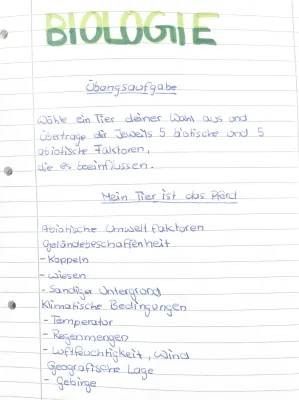 BIOLOGIE
Übungsaufgabe
Wähle ein Tier deiner Wahl aus und
übertrage dir jeweils 5 biotische und 5
abiotische Faktoren,
die es beeinflussen.
Mein Tier ist das Pferd
Abiotische Umweltfaktoren
Geländebeschaffenheit
- Koppeln
- Wiesen
- Sandiger Untergrund
Klimatische Bedingungen
- Temperatur
- Regenmengen
- Luftfeuchtigkeit, Wind
Geografische Lage
- Gebirge